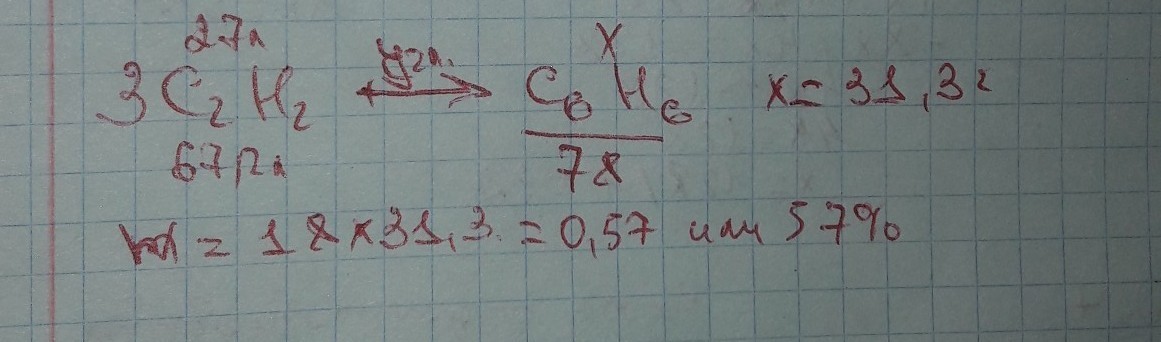 27л
3C₂H₂ → C₆H₆ x = 31,3г
x
67,2л 78
= 18 × 31,3 = 0,57 или 57%